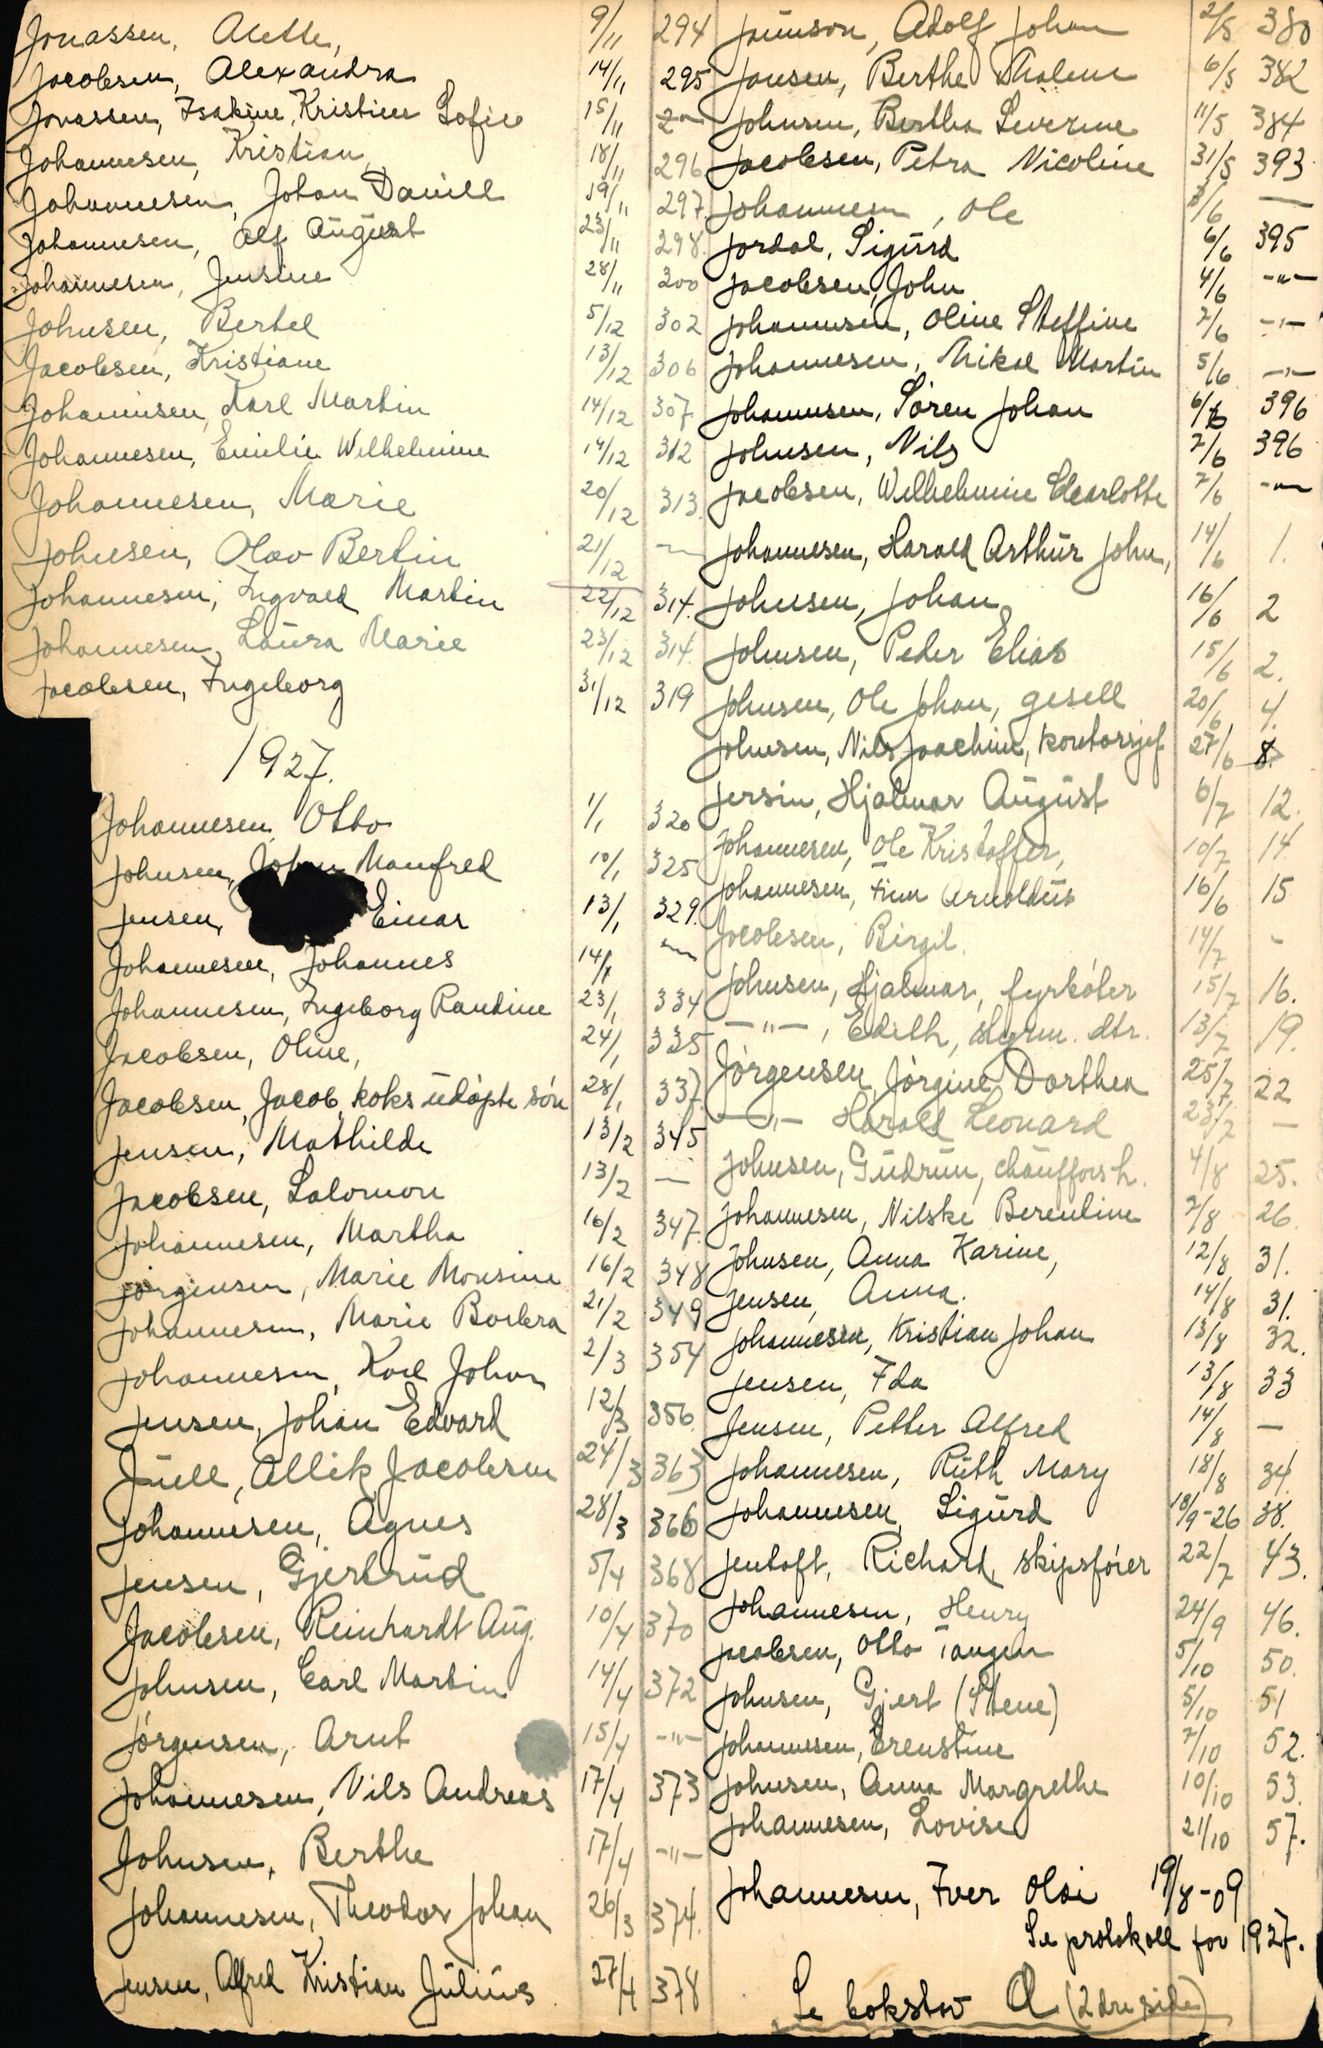 Jonassen, Alette, 9/11 294
Jacobsen, Alexandra 14/11 295
Jonassen, Isakine Kristine Sofie 15/11 -"-
Johannesen, Kristian, 18/11 296
Johannesen, Johan Daniel 19/11 297
Johannesen, Alf August 23/11 298
Johannesen, Jensine 28/11 300
Johnsen, Bertel 5/12 302
Jacobsen, Kristiane 13/12 306
Johannesen, Karl Martin 14/12 307
Johannesen, Emilie Wilhelmine 14/12 312
Johannesen, Marie 20/12 313
Johnsen, Olav Bertin 21/12 -"-
Johannesen, Ingvald Martin 22/12 314.
Johannesen, Laura Marie 23/12 314.
Jacobsen, Ingeborg 31/12 319
1927.
Johannesen, Otto 1/1 320
Johnsen, Johan Manfred 10/1 325
Jensen, Einar 13/1 329.
Johannesen, Johannes 14/1 -"-
Johannesen, Ingeborg Randine 23/1 334
Jacobsen, Oline, 24/1 335
Jacobsen, Jacob, koks udøpte søn 28/1 337.
Jensen, Mathilde 13/2 345
Jacobsen, Salomon 13/2 -"-
Johannesen, Martha 16/2 347.
Jørgensen, Marie Monsine 16/2 348
Johannesen, Marie Barbra 21/2 349
Johannesen, Karl Johan 2/3 354
Jensen, Johan Edvard 12/3 356.
Juell, Allik Jacobsen 24/3 363
Johannesen, Agnes 28/3 366
Jensen, Gjertrud 5/4 368
Jacobsen, Reinhardt Aug. 10/4 370
Johnsen, Carl Martin 14/4 372
Jørgensen, Arnt 15/4 -"-
Johannesen, Nils Andreas 17/4 373
Johnsen, Berthe 17/4 -"-
Johannesen, Theodor Johan 26/3 374.
Jensen, Alfred Kristian Julius 27/4 378
Adolf Johan 2/5 380
Jansen, Berthe Thalene 6/5 382
Johnsen, Bertha Severine 11/5 384
Jacobsen, Petra Nicoline 31/5 393
Johannesen, Ole 3/6 —
Jordal, Sigurd 6/6 395
Jacobsen, John 4/6 -"-
Johannesen, Oline Steffine 2/6 -"-
Johannesen, Mikal Martin 5/6 -"-
Johannesen, Søren Johan 6/6 396
Johnsen, Nils 7/6 396
Jacobsen, Wilhelmine Charlotte 7/6 -"-
Johannesen, Harald Arthur John, 14/6 1.
Johnsen, Johan 16/6 2
Johnsen, Peder Elias 15/6 2.
Johnsen, Ole Johan, gesell 20/6 4.
Johnsen, Nils Joachim, kontorsjef 27/6 8.
Jersin, Hjalmar August 6/7 12.
Johannesen, Ole Kristoffer, 10/7 14.
Johannesen, Finn Arnoldus 16/6 15
Jacobsen, Birgit. 14/7 -
Johnsen, Hjalmar, fyrbøter 15/7 16.
-"-, Edith, styrm. dtr. 13/7 19.
Jørgensen, Jørgine Dorthea 25/7 22
-"- Harald Leonard 23/7 —
Johnsen, Gudrun, chaufførs h. 4/8 25.
Johannesen, Nilske Berentine 7/8 26.
Johnsen, Anna Karine, 12/8 31.
Jensen, Anna. 14/8 31.
Johannesen, Kristian Johan 13/8 32.
Jensen, Ida 13/8 33
Jensen, Petter Alfred 14/8 —
Johannesen, Ruth Mary 18/8 34.
Johannesen, Sigurd 18/9-26 38.
Jentoft, Richard, skipsfører 22/7 43.
Johannesen, Henry 24/9 46.
Jacobsen, Otto Tangen 5/10 50.
Johnsen, Gjert (Stene) 5/10 51
Johannesen, Ernstine 7/10 52.
Johnsen, Anna Margrethe 10/10 53.
Johannesen, Lovise 21/10 57.
Johannesen, Iver Olai 19/8-09
Se protokoll for 1927.
Se bokstav A (2dre side)